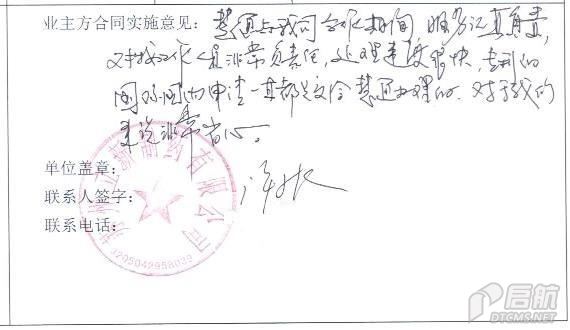 业主方合同实施意见：慧通与我司合作期间，服务认真负责，
非常负责任，处理速度很快，专利的
国际国内申请一直都是交给慧通办理的．对于我们
来说非常省心。
单位盖章：
联系人签字：
联系电话：
制药有限公司
3205042958039
启航
DTCMS.NET